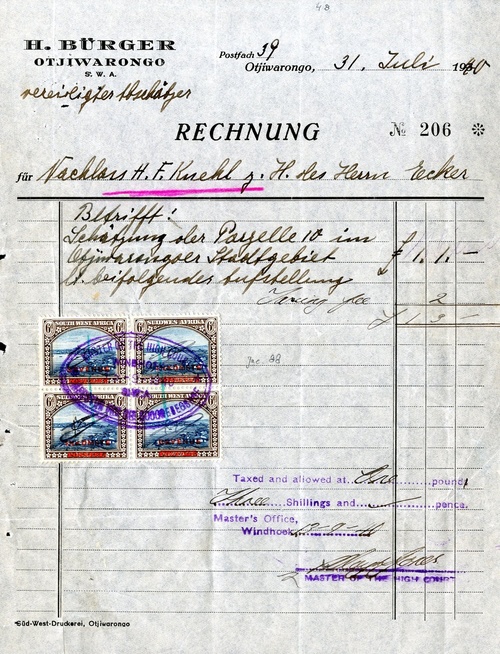 4B
H. BÜRGER
OTJIWARONGO
S. W. A.
vereidigter Abschätzer
Postfach 39
Otjiwarongo, 31. Juli 1940
RECHNUNG
№ 206
für Nachlass H. F. Knehl z. H. des Herrn Ecker
Betrifft:
Schätzung der Parzelle 10 im
Otjiwarongoer Stadtgebiet £ 1.1.-
lt. beifolgender Aufstellung
Taxing fee 2
£ 1 3 -
6d SOUTH WEST AFRICA 6d
6d SUIDWES AFRIKA 6d
MASTER OF THE HIGH COURT
WINDHOEK
S.W.A.
Taxed and allowed at One pound,
Three Shillings and pence.
Master's Office,
Windhoek
MASTER OF THE HIGH COURT
Süd-West-Druckerei, Otjiwarongo